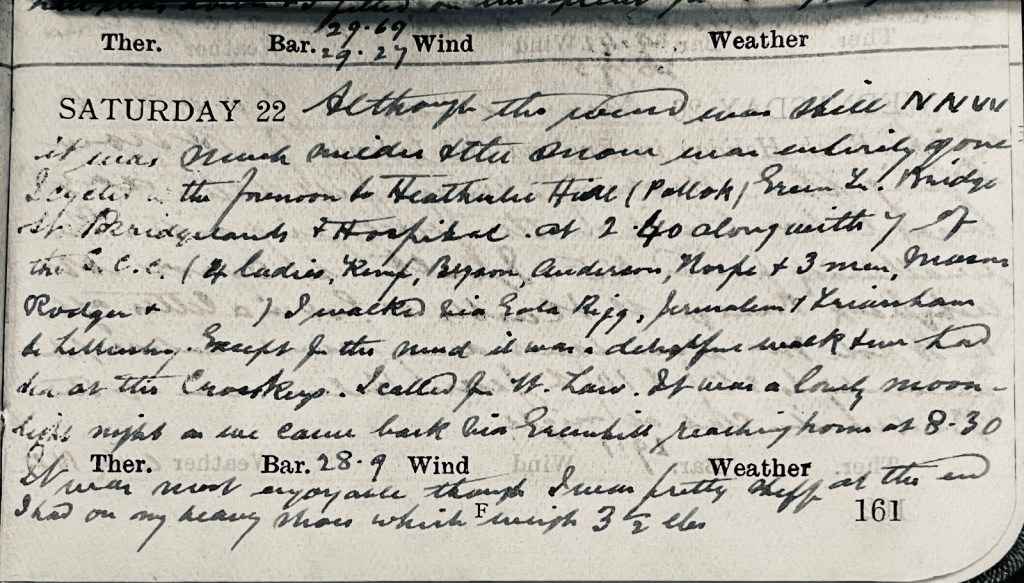 29.69
Ther. Bar. 29.27 Wind Weather
SATURDAY 22 Although the wind was still NNW
it was much milder & the snow was entirely gone
I cycled in the forenoon to Heatherlie Hill (Pollok) Green Tr. Bridge
St. Bridgelands & Hospital. at 2.40 along with 7 of
the S.C.C. (4 ladies, Kemp, Bryson, Anderson, Thorpe & 3 men, Mason
Rodger & ) I walked via Rigg, Jerusalem &
to Lilliesleaf. Except for the mud it was a delightful walk & we had
tea at the Crosskeys. I called for W. Law. It was a lovely moon-
light night as we came back via Greenhill, reaching home at 8-30
Ther. Bar. 28.9 Wind Weather
It was most enjoyable though I was pretty stiff at the end
I had on my heavy shoes which weigh 3 ½ lbs
F 161